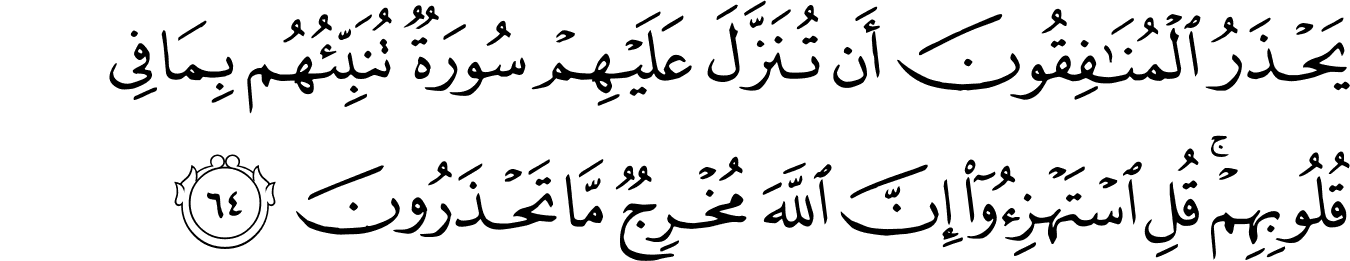 يَحْذَرُ ٱلْمُنَٰفِقُونَ أَن تُنَزَّلَ عَلَيْهِمْ سُورَةٌ تُنَبِّئُهُم بِمَا فِى
قُلُوبِهِمْ ۚ قُلِ ٱسْتَهْزِءُوٓا۟ إِنَّ ٱللَّهَ مُخْرِجٌ مَّا تَحْذَرُونَ ٦٤